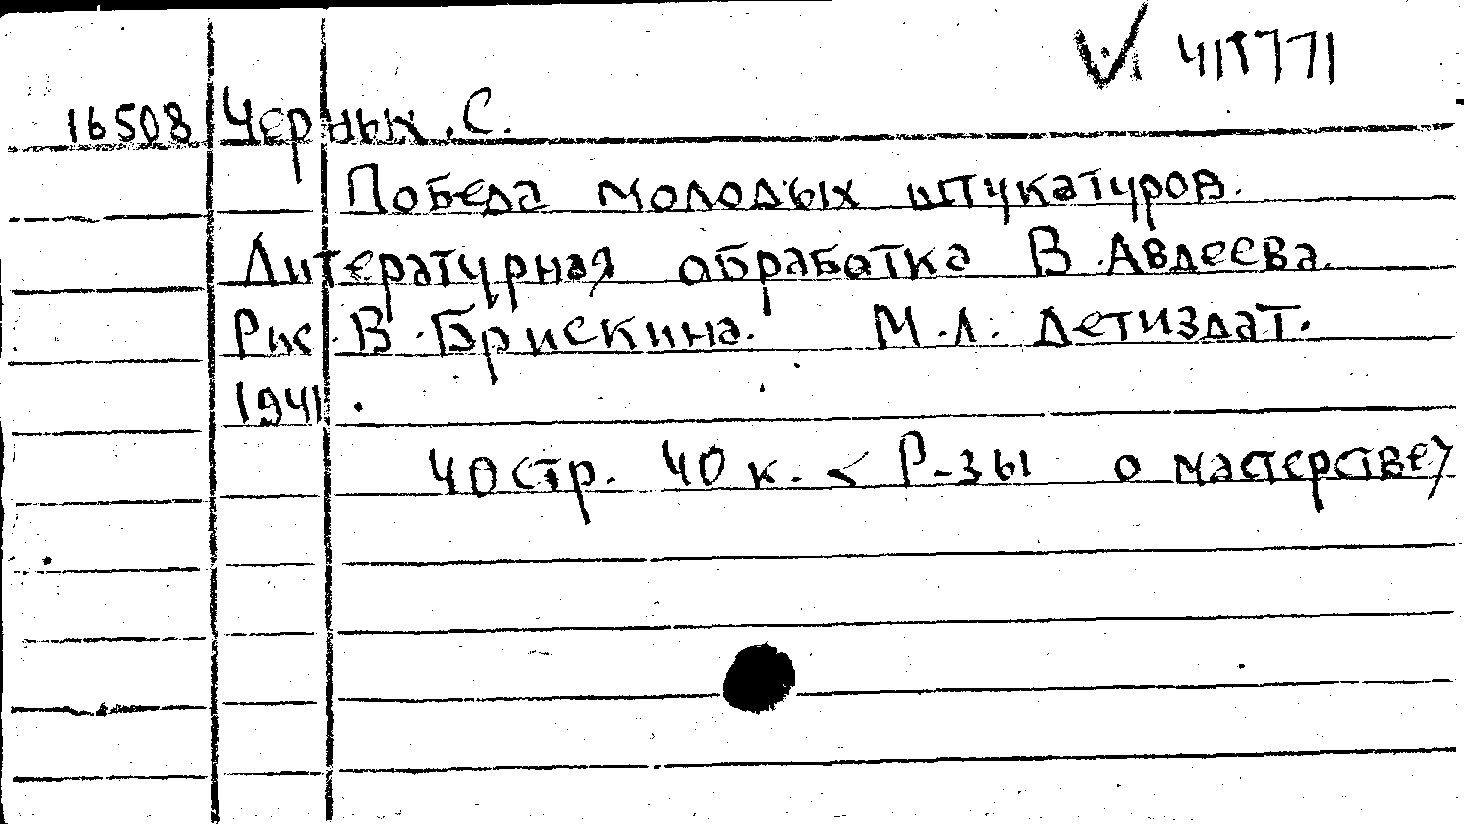 16508 Черных, С.
Победа молодых штукатуров.
Литературная обработка В. Авдеева.
Рис. В. Брискина. М.Л. Детиздат.
1941.
40 стр. 40 к. < Р-зы о мастерстве>